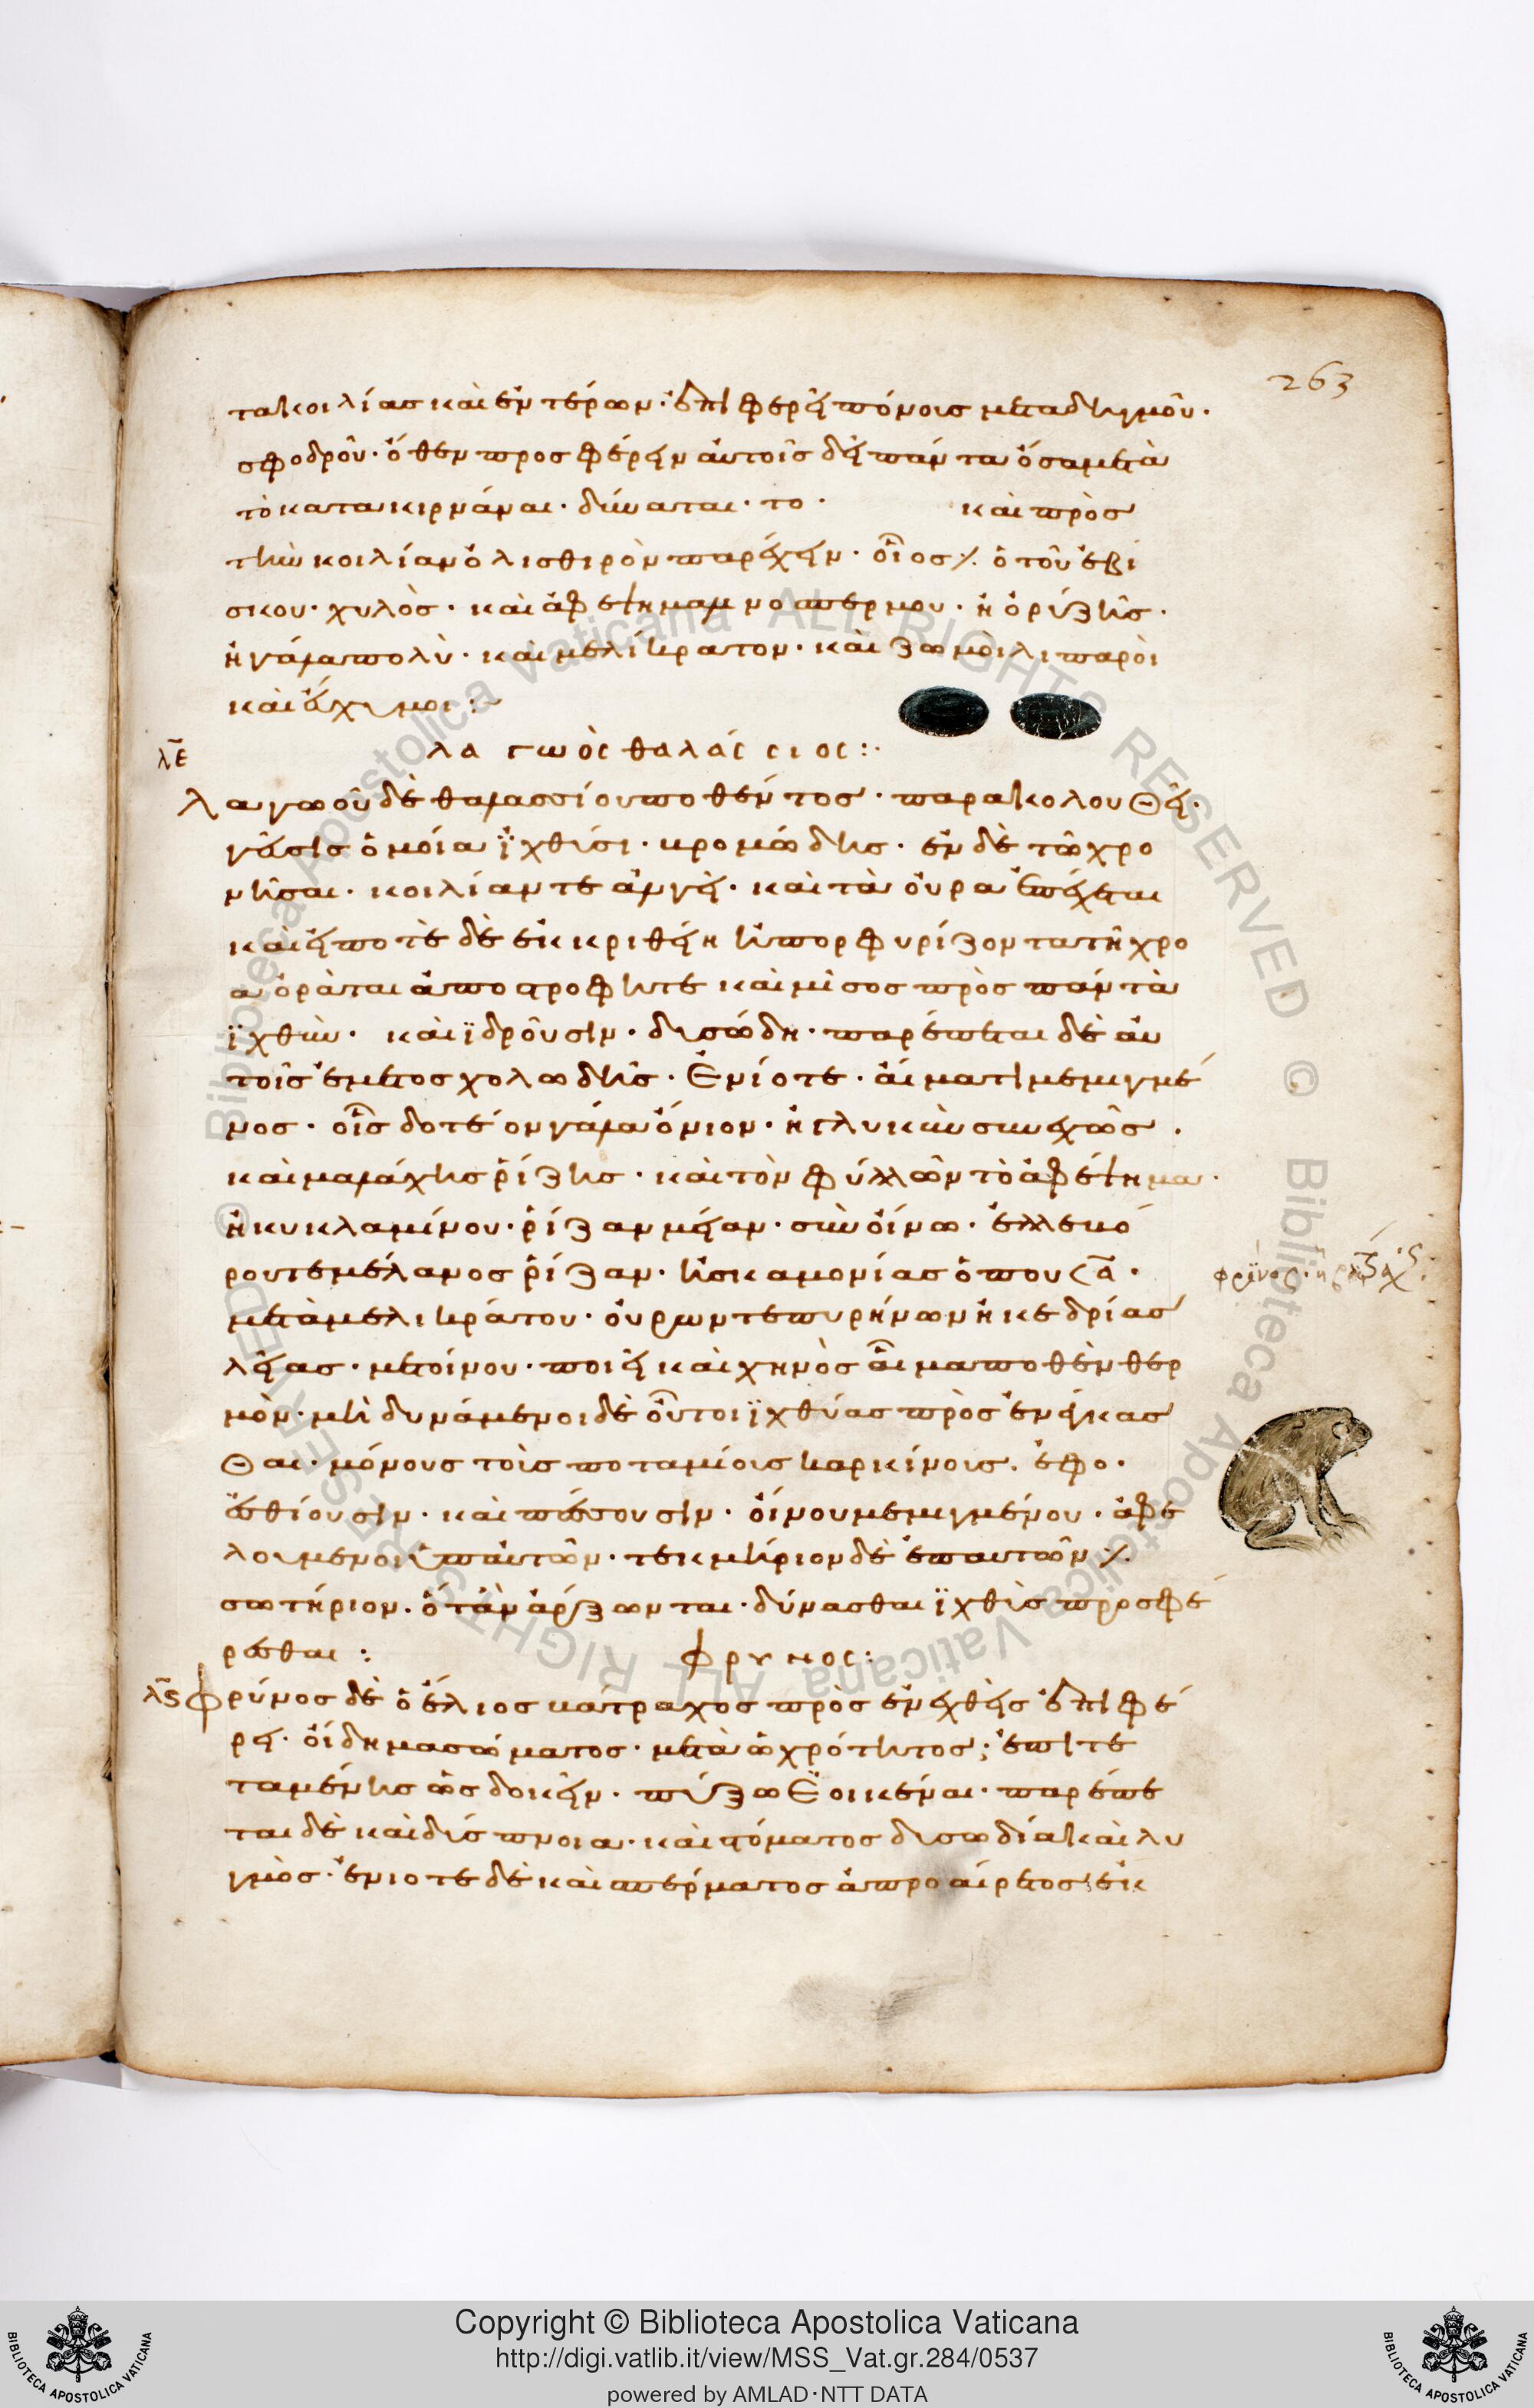 263
τα κοιλίας καὶ ἐν τέρων· ἐπιφέρει πόνοις μεταδηγμοῦ·
σφοδροῦ· ὅθεν προσφέρειν αὐτοῖς δεῖ πάντα ὅσα μετὰ
τὸ κατακιρνάναι· δύναται· το· καὶ πρὸς
τὴν κοιλίαν ὀλισθιρὸν παρέχειν· οἷος ὁ τοῦ ἐβί
σκου· χυλὸς· καὶ ἀφέψημα λινοσπέρμου· ἢ ὀρύζης·
ἢ γάλα πολὺ· καὶ μελίκρατον· καὶ ζωμὸι λιπαρὸι
καὶ ἔυχυμοι :~
λε
λαγωὸς θαλάσσιος:·
λαγωοῦ δὲ θαλασσίου ποθέντος· παρακολουθεῖ·
γεῦσις ὁμοία ἰχθύσι· βρομώδης· ἐν δὲ τῶ χρο
νῆσαι· κοιλίαν τε ἀλγεῖ· καὶ τὰ οὖρα ἐπέχεται
καὶ εἴποτε δὲ ἐκκριθείη ἢ πορφυρίζοντα τῆ χρο
α ὁρᾶται ἀποστροφή τε καὶ μῖσος πρὸς πάντα
ἰχθὺν· καὶ ἱδροῦσιν· δυσώδη· παρέπεται δὲ αυ
τοῖς ἔμετος χολώδης· Ἐνίοτε· αἵματι μεμιγμέ
νος· οἷς δοτέον γάλα ὄνιον· ἢ γλυκὺν συνεχῶς·
καὶ μαλάχης ῥίζης· καὶ τὸν φύλλων τὸ ἀφέψημα·
ἢ κυκλαμίνου· ῥίζαν λείαν· σὺν οἴνω· ἐλλεβό
ρου τε μέλανος ῥίζαν· ἢ σκαμονίας ὀποῦ < α·
μετὰ μελικράτου· οὔρων τε πυρήνων ἢ κεδρίας
λείας· μετ οίνου· ποιεῖ καὶ χηνὸς αἷμα ποθὲν θερ
μὸν· μὴ δυνάμενοι δὲ οὗτοι ἰχθύας πρὸς ἐνείκασ
θαι· μόνους τοὶς ποταμίοις καρκίνοις· ἐφο·
ἐσθίουσιν· καὶ πέττουσιν· οἴνου μεμιγμένου· ὠφε
λουμενοι ὑπ αυτῶν· τεκμήριον δὲ ἐπ αυτῶν
σωτήριον· ὅταν ἄρξωνται· δύνασθαι ἰχθὺς προσφέ
ρεσθαι :
φρυνος:
λς
φρύνος δὲ ὁ ἕλιος βάτραχος πρὸς ἐνεχθεὶς ἐπιφέ
ρει· οἴδημα σώματος· μετὰ ὠχρότητος; ἐπιτε
ταμένης ὡς δοκεῖν· πύξω ἐοικέναι· παρέπε
ται δὲ καὶ δύσπνοια· καὶ στόματος δυσωδία καὶ λυ
γμὸς· ἐνιοτε δὲ καὶ σπέρματος ἀπροαίρετος ἐκ
Copyright © Biblioteca Apostolica Vaticana
http://digi.vatlib.it/view/MSS_Vat.gr.284/0537
powered by AMLAD·NTT DATA